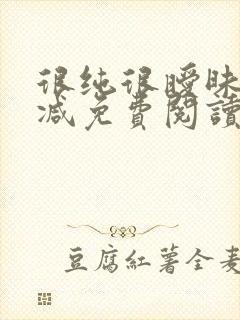 很纯很暧昧
减免費閱讀
豆腐紅薯全麦